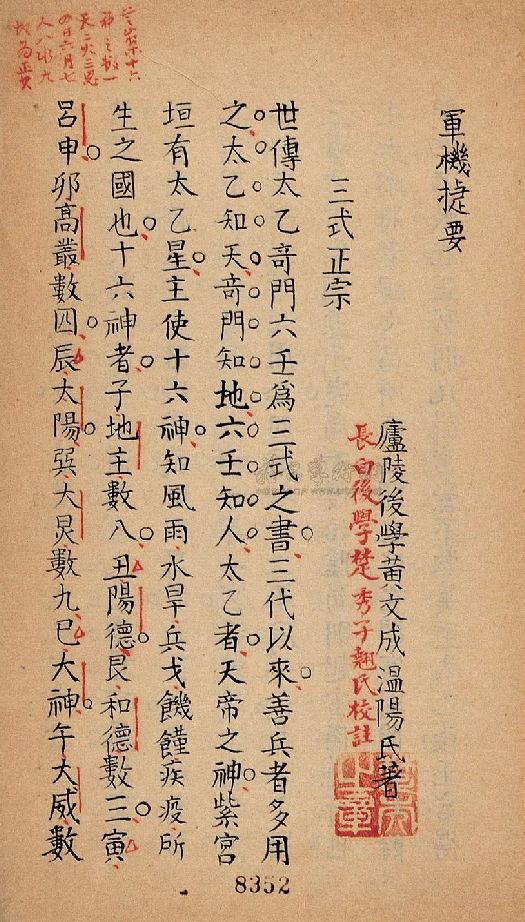 軍機捷要
廬陵後學黃文成溫陽氏著
長白後學楚秀子翹氏校註
三式正宗
世傳太乙奇門六壬爲三式之書三代以來善兵者多用
之太乙知天奇門知地六壬知人太乙者天帝之神紫宮
垣有太乙星主使十六神知風雨水旱兵戈饑饉疾疫所
生之國也十六神者子地主數八丑陽德艮和德數三寅
呂申卯高叢數四辰太陽巽大炅數九巳大神午大威數
8352